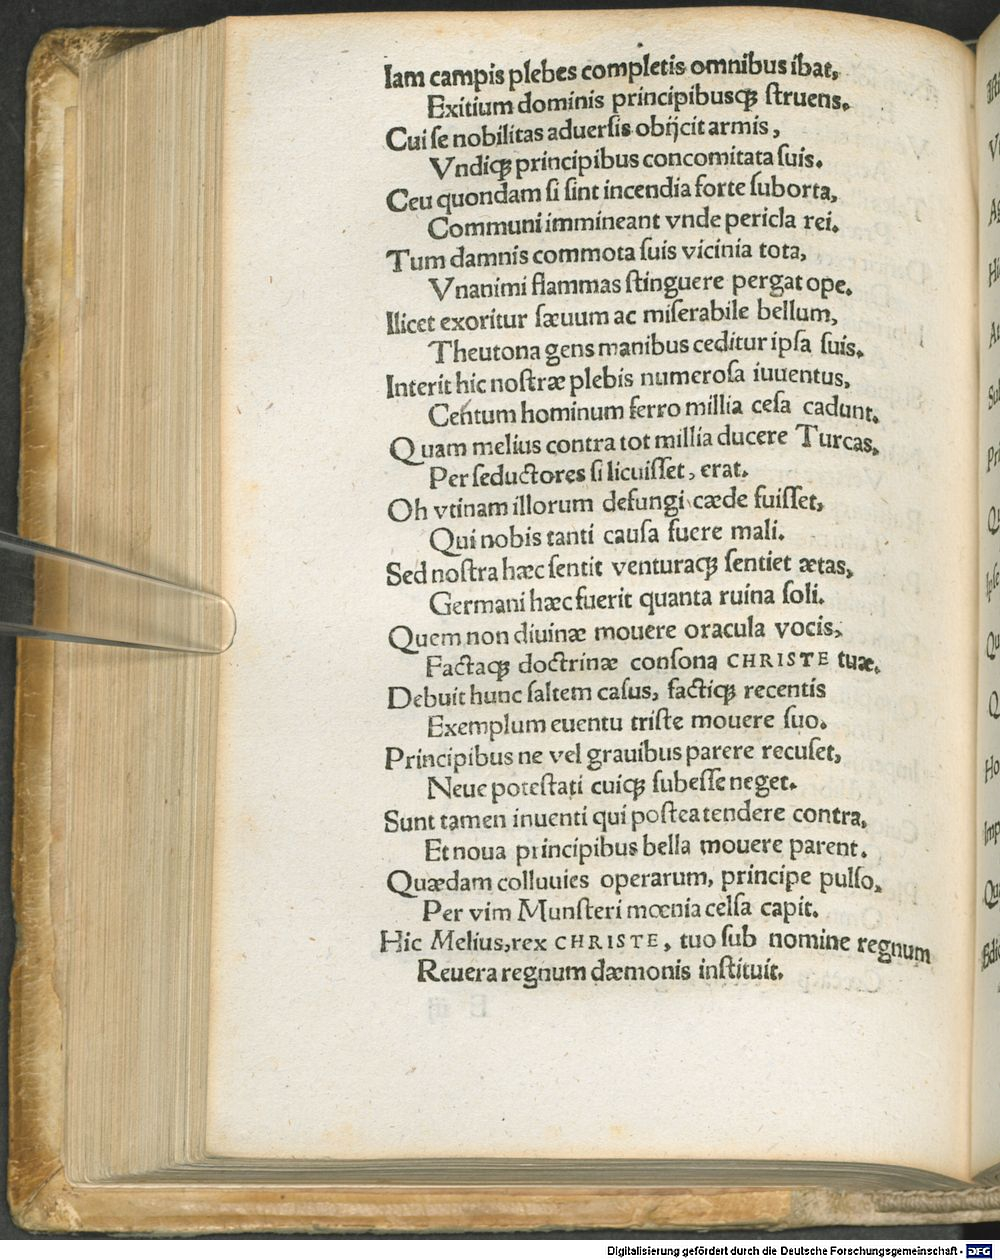 Iam campis plebes completis omnibus ibat,
Exitium dominis principibusqꝫ ſtruens.
Cui ſe nobilitas aduerſis obijcit armis,
Vndiqꝫ principibus concomitata ſuis.
Ceu quondam ſi ſint incendia forte ſuborta,
Communi immineant vnde pericla rei.
Tum damnis commota ſuis vicinia tota,
Vnanimi flammas ſtinguere pergat ope.
Ilicet exoritur ſæuum ac miſerabile bellum,
Theutona gens manibus ceditur ipſa ſuis.
Interit hic noſtræ plebis numeroſa iuuentus,
Centum hominum ferro millia ceſa cadunt.
Quam melius contra tot millia ducere Turcas,
Per ſeductores ſi licuiſſet, erat.
Oh vtinam illorum defungi cæde fuiſſet,
Qui nobis tanti cauſa fuere mali.
Sed noſtra hæc ſentit venturaqꝫ ſentiet ætas,
Germani hæc fuerit quanta ruina ſoli.
Quem non diuinæ mouere oracula vocis,
Factaqꝫ doctrinæ conſona CHRISTE tuæ.
Debuit hunc ſaltem caſus, factiqꝫ recentis
Exemplum euentu triſte mouere ſuo.
Principibus ne vel grauibus parere recuſet,
Neue poteſtati cuiqꝫ ſubeſſe neget.
Sunt tamen inuenti qui poſtea tendere contra,
Et noua principibus bella mouere parent.
Quædam colluuies operarum, principe pulſo,
Per vim Munſteri mœnia celſa capit.
Hic Melius, rex CHRISTE, tuo ſub nomine regnum
Reuera regnum dæmonis inſtituit.
Digitalisierung gefördert durch die Deutsche Forschungsgemeinschaft - DFG